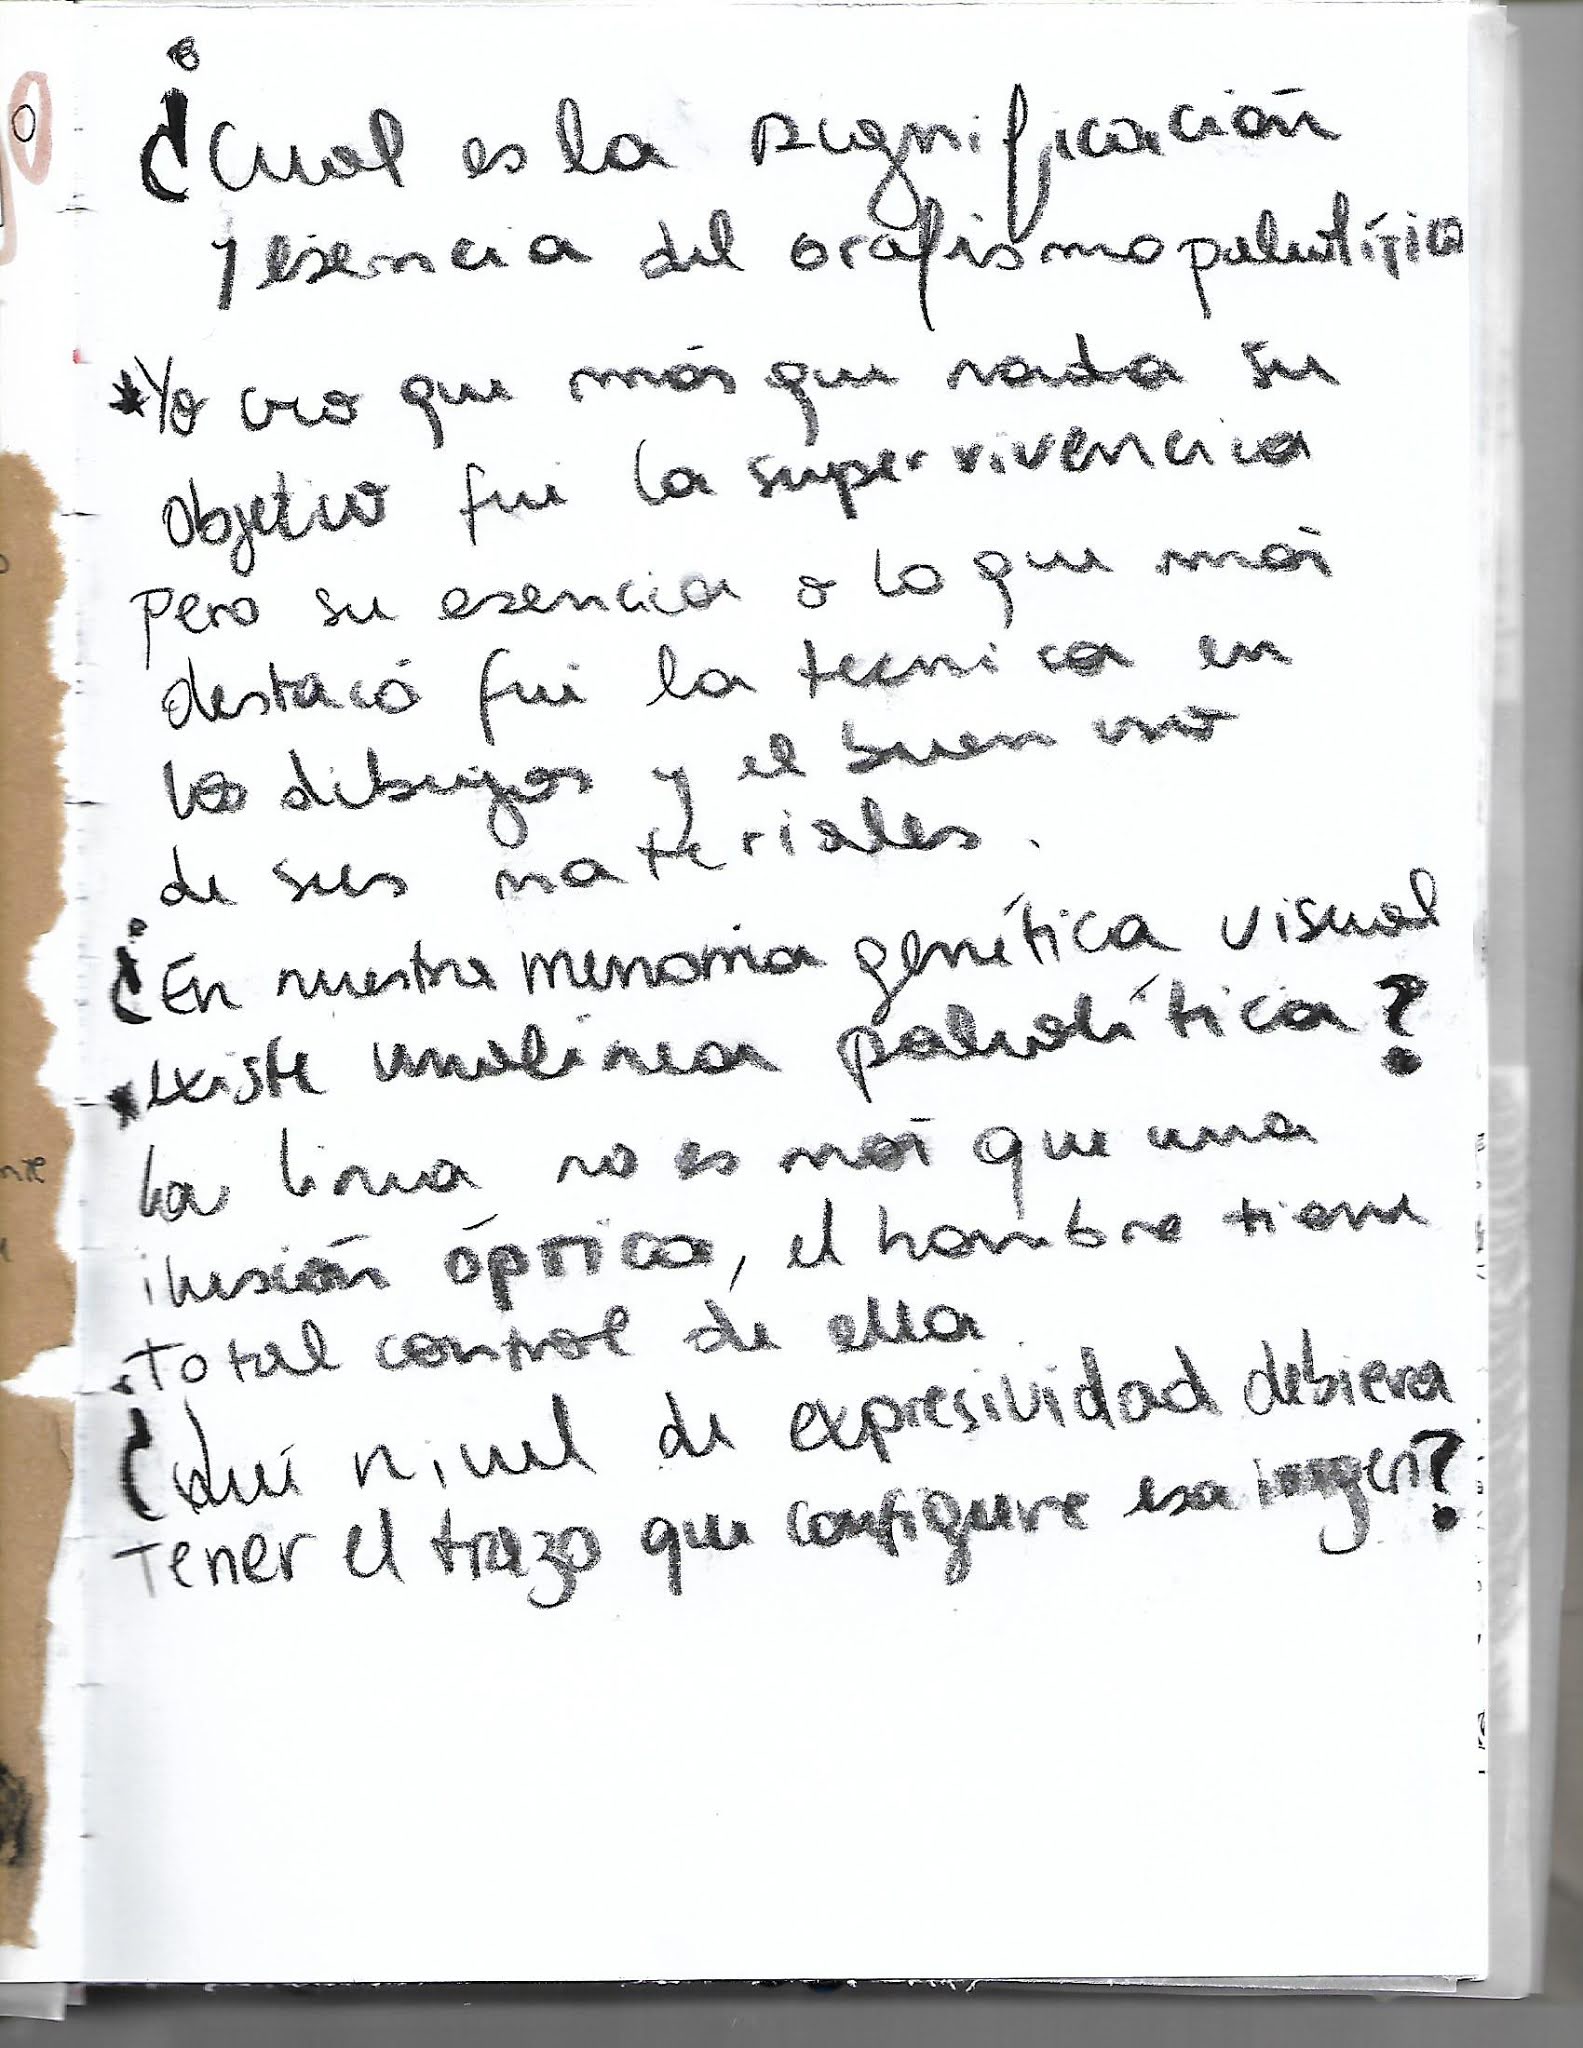 ¿Cual es la significación
y esencia del grafismo paleolítico
*Yo creo que más que nada su
objetivo fue la supervivencia
pero su esencia o lo que más
destacó fue la tecnica en
los dibujos y el buen uso
de sus materiales.
¿En nuestra memoria genética visual
existe una linea paleolítica?
*
La linea no es más que una
ilusión óptica, el hombre tiene
total control de ella
¿Qué nivel de expresividad debiera
tener el trazo que configure esa imagen?